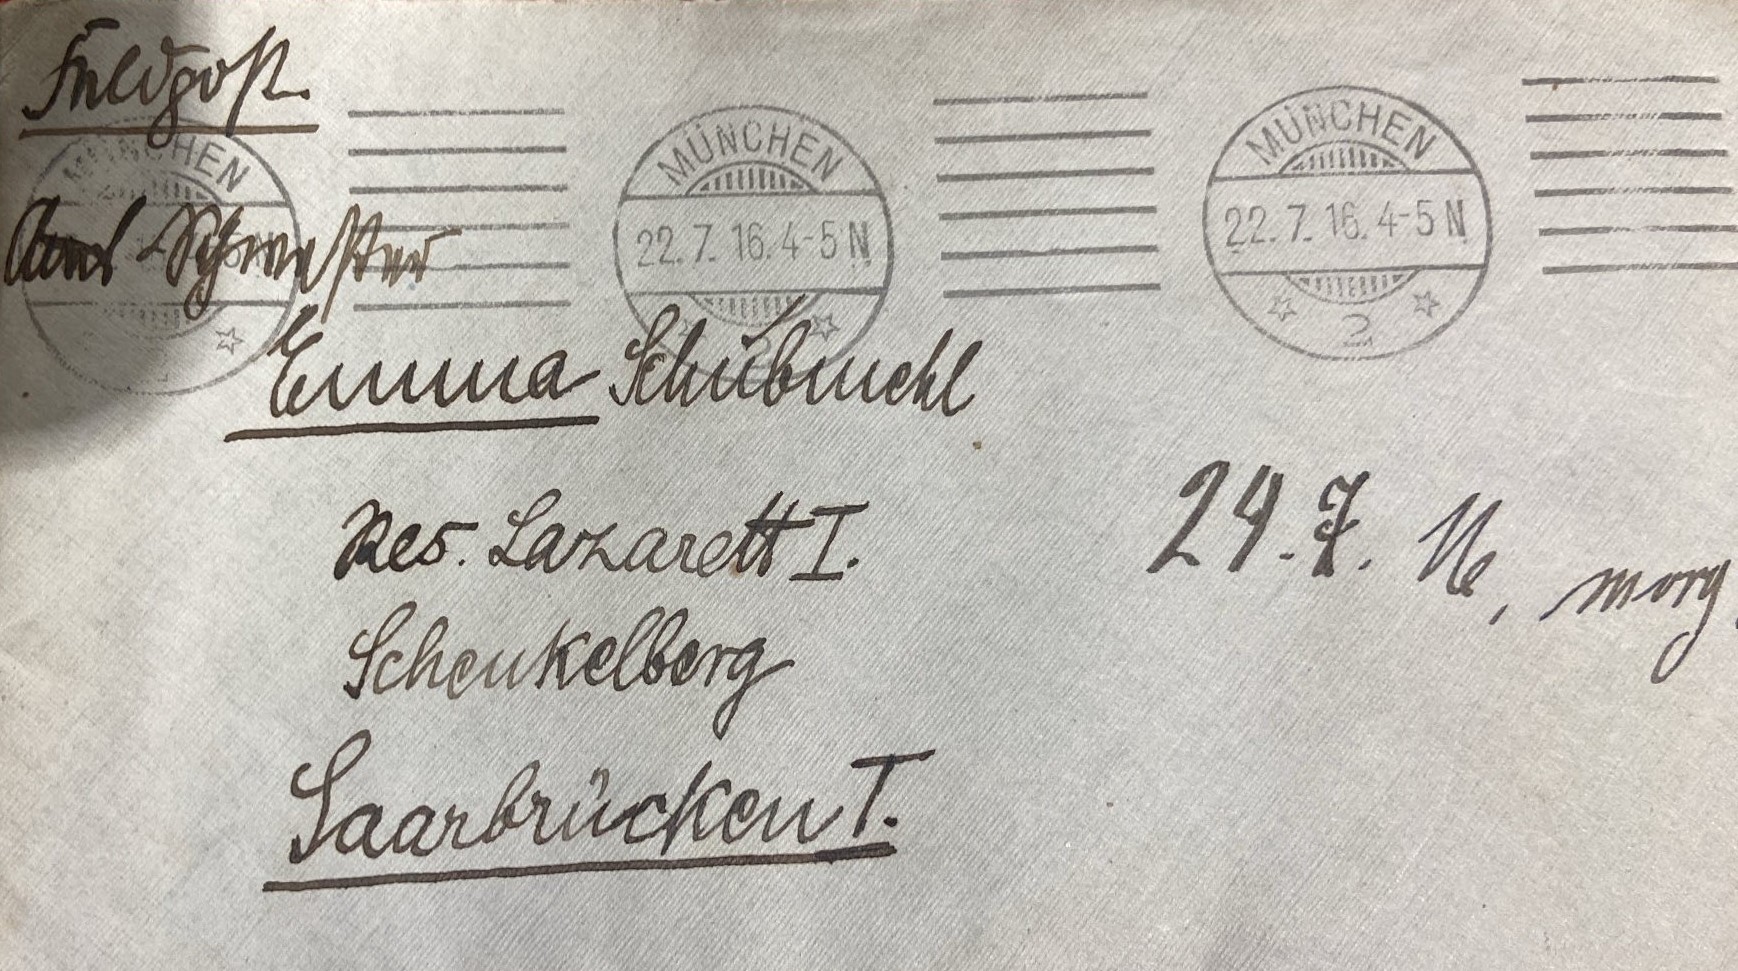 Feldpost.
MÜNCHEN
MÜNCHEN
22.7.16.4-5 N
2
MÜNCHEN
22.7.16.4-5 N
2
Schwester
Emma Schübmehl
Res. Lazarett I.
Schenkelberg
Saarbrücken I.
24.7. morg.